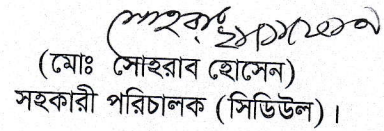 সোহরাব হোসেন
(মোঃ সোহরাব হোসেন)
সহকারী পরিচালক (সিডিউল)।